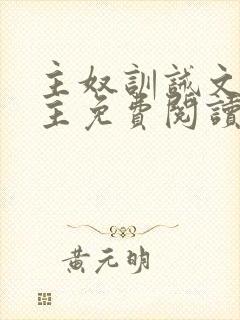 主奴訓誡文
主免費閱讀
黃元明